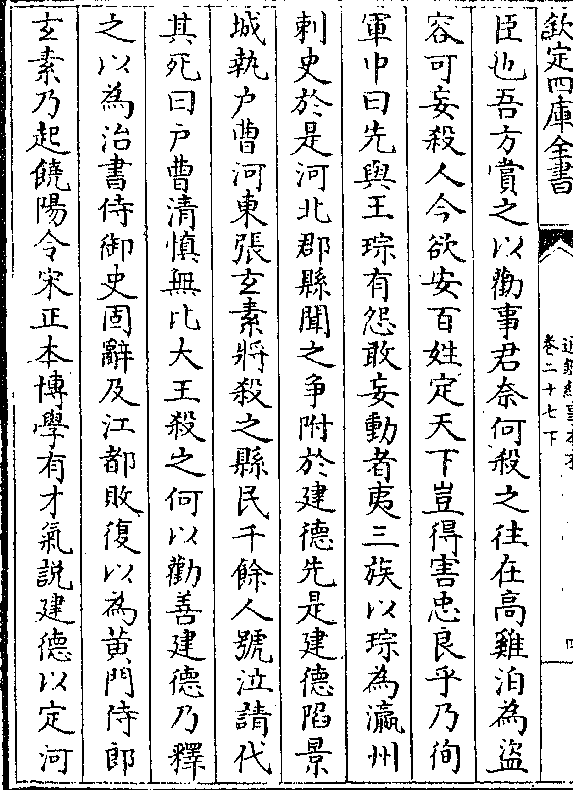 欽定四庫全書
通鑑紀事本末
卷二十七下
四
臣也吾方賞之以勸事君奈何殺之往在高雞泊為盜
容可妄殺人今欲安百姓定天下豈得害忠良乎乃徇
軍中曰先與王琮有怨敢妄動者夷三族以琮為瀛州
刺史於是河北郡縣聞之爭附於建德先是建德陷景
城執户曹河東張玄素將殺之縣民千餘人號泣請代
其死曰户曹清慎無比大王殺之何以勸善建德乃釋
之以為治書侍御史固辭及江都敗復以為黄門侍郎
玄素乃起饒陽令宋正本博學有才氣説建德以定河